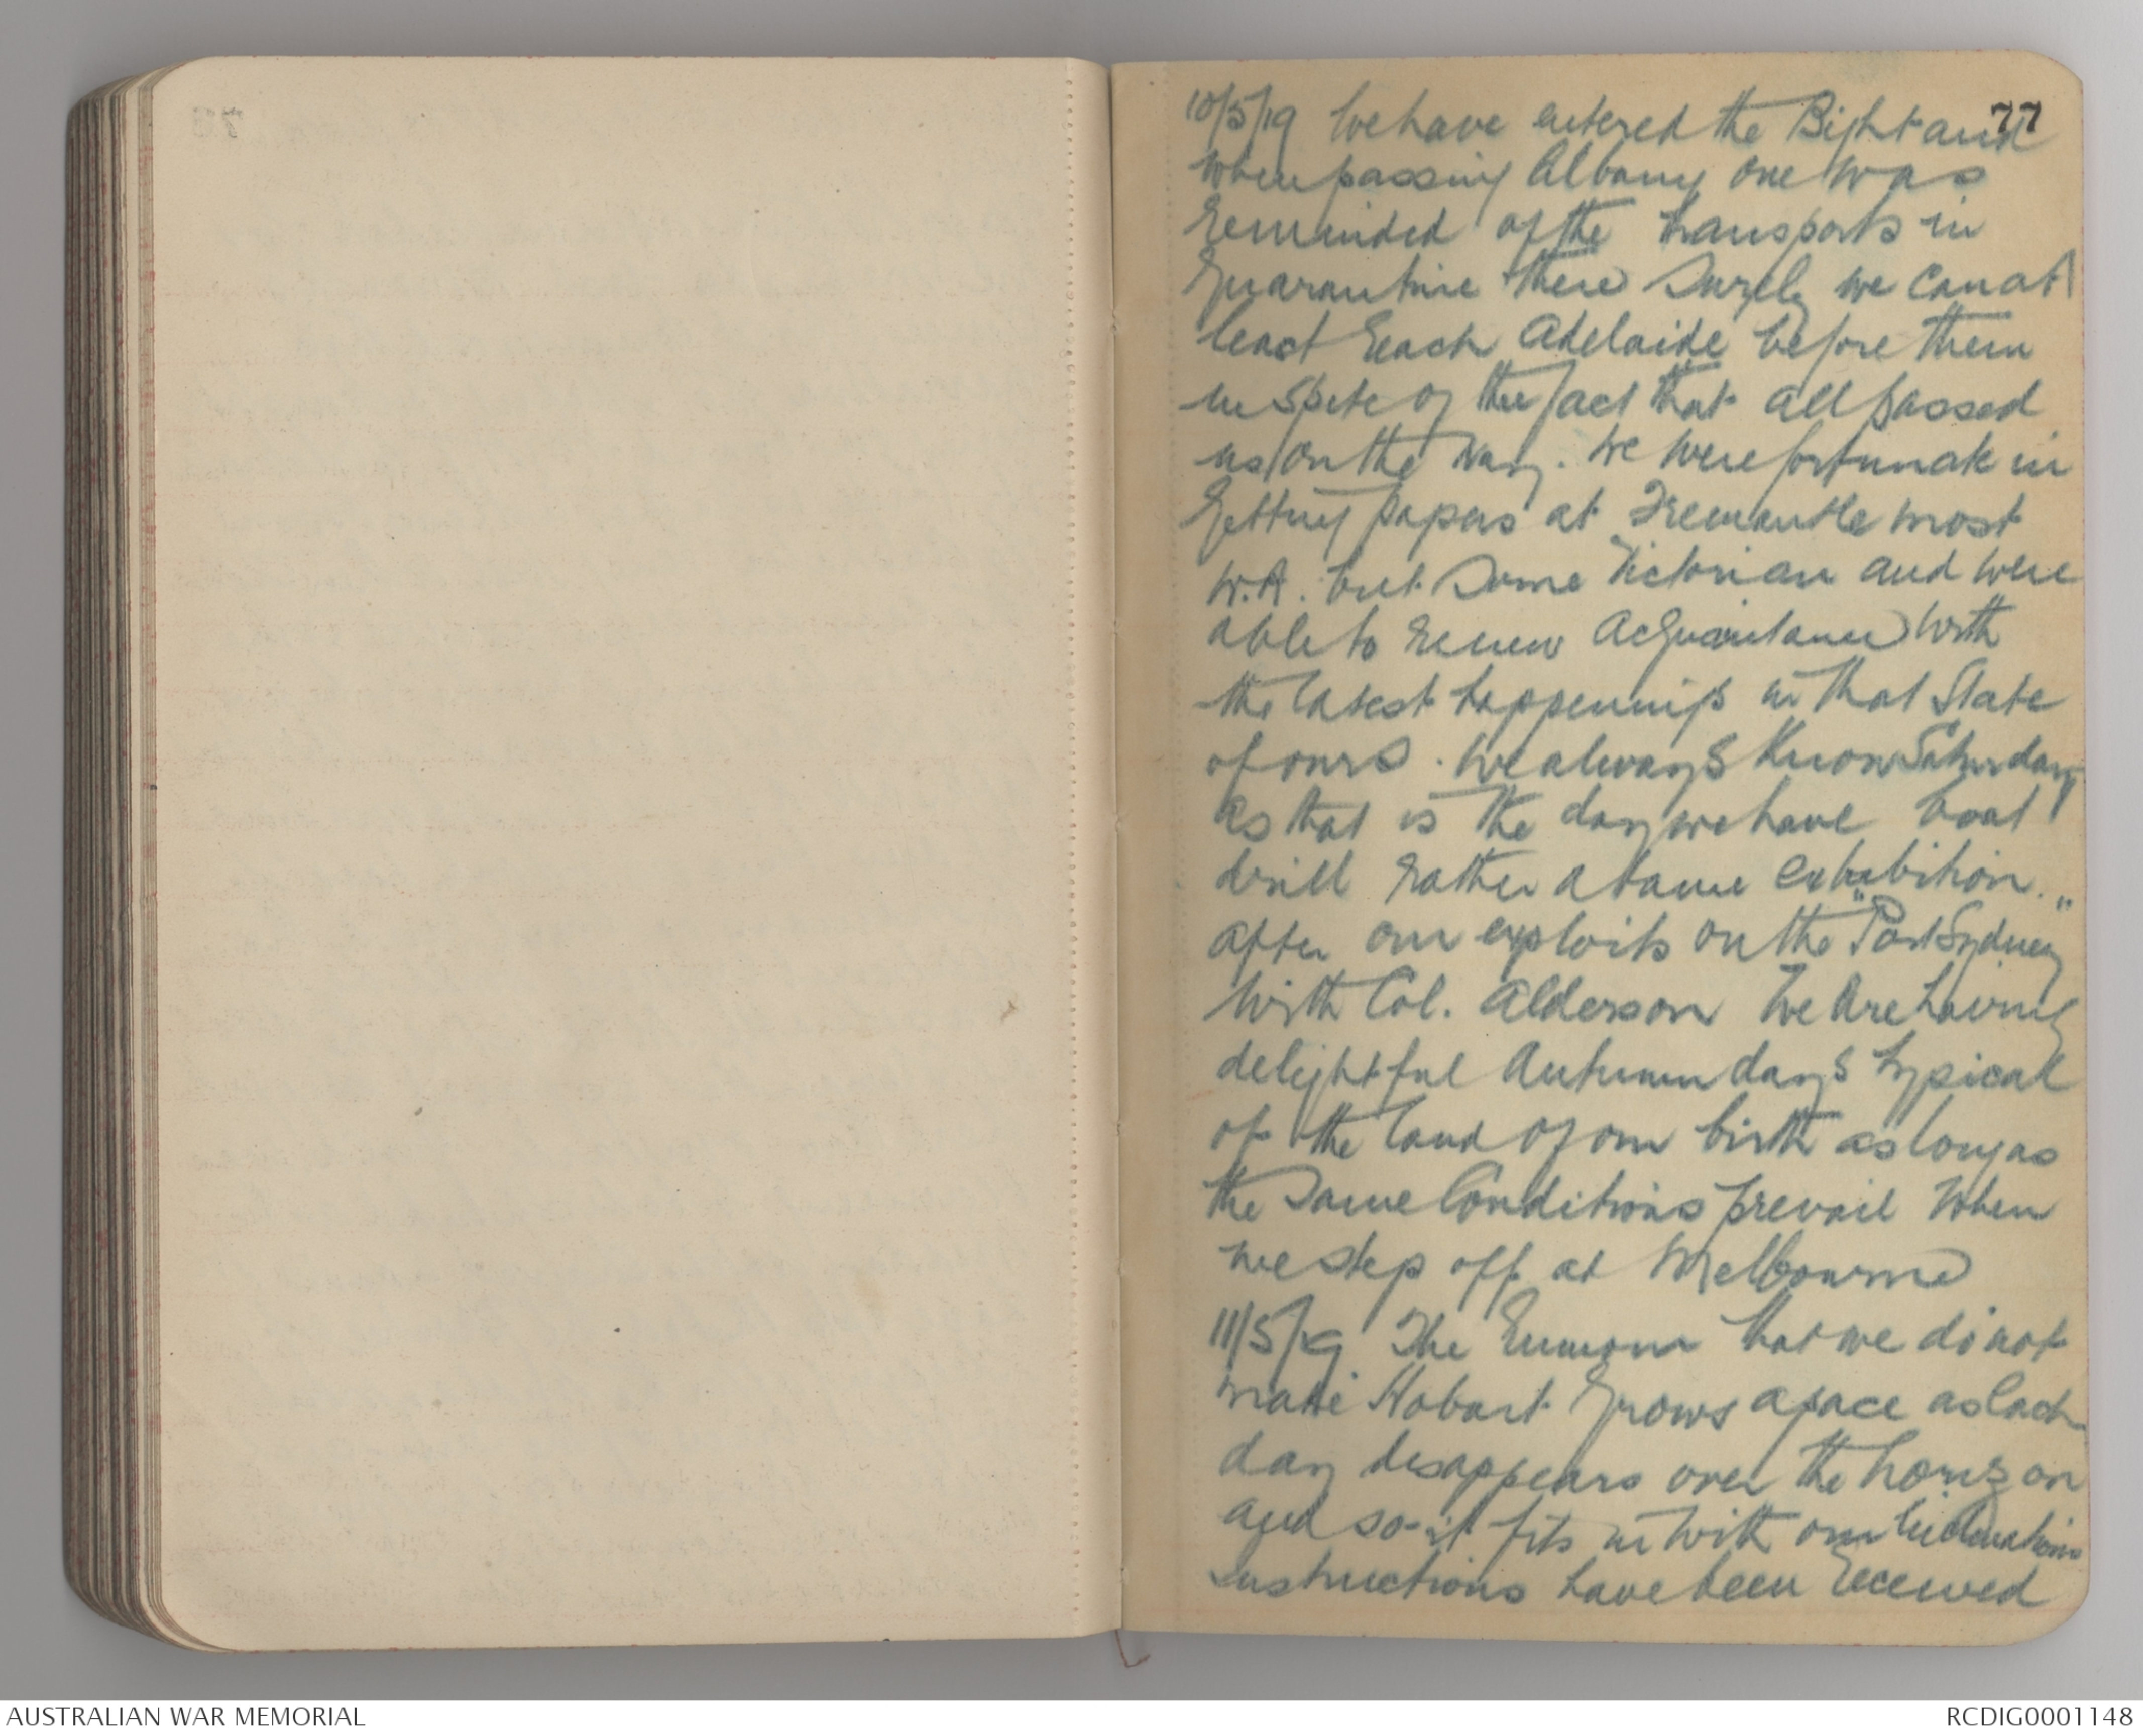 77
10/5/19 We have entered the Bight and
when passing Albany one was
reminded of the transports in
quarantine there Surely we can at
least reach Adelaide before them
in spite of the fact that all passed
us on the way. We were fortunate in
getting papers at Fremantle most
W.A. but some Victorian and were
able to renew acquaintance with
the latest happenings in that State
of ours. We always know Saturday
as that is the day we have boat
drill rather a tame exhibition
after our exploits on the "Port Sydney"
with Col. Alderson We are having
delightful Autumn days typical
of the land of our birth as long as
the same conditions prevail when
we step off at Melbourne
11/5/19 The rumour that we do not
make Hobart grows apace as each
day disappears over the horizon
and so it fits in with our inclinations
instructions have been received
AUSTRALIAN WAR MEMORIAL
RCDIG0001148